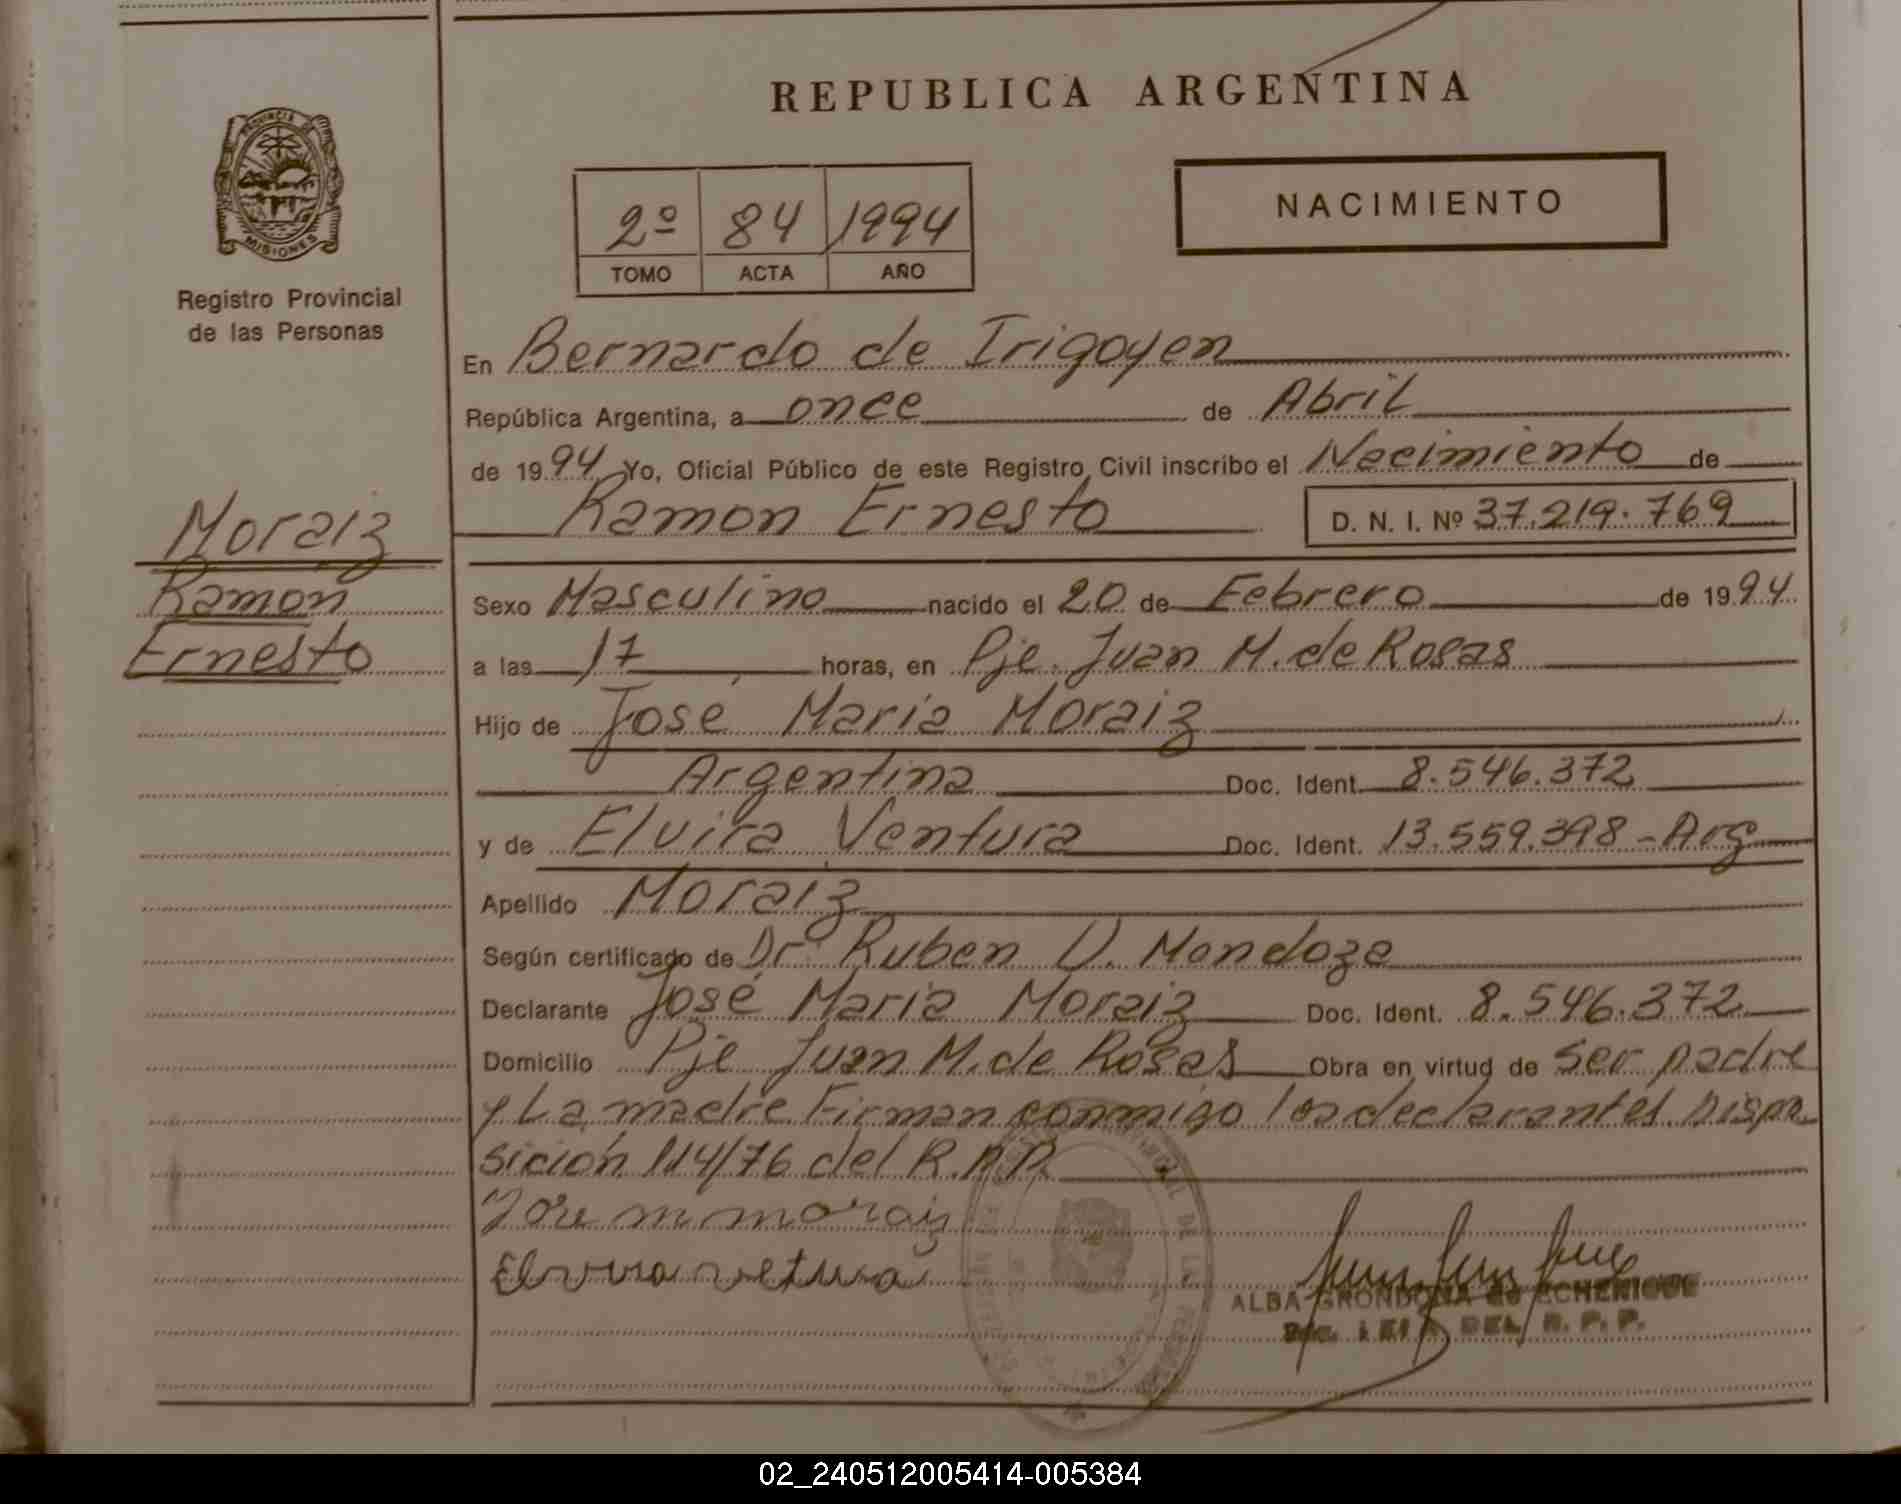 REPUBLICA ARGENTINA
PROVINCIA DE
MISIONES
Registro Provincial
de las Personas
2º 84 1994
TOMO ACTA AÑO
NACIMIENTO
En Bernardo de Irigoyen
República Argentina, a once de Abril
de 1994 Yo, Oficial Público de este Registro Civil inscribo el Nacimiento de
Ramon Ernesto D. N. I. Nº 37.219.769
Moraiz
Ramon
Ernesto
Sexo Masculino nacido el 20 de Febrero de 1994
a las 17 horas, en Pje. Juan M. de Rosas
Hijo de José Maria Moraiz
Argentina Doc. Ident. 8.546.372
y de Elvira Ventura Doc. Ident. 13.559.398 - Arg
Apellido Moraiz
Según certificado de Dr. Ruben D. Mendoza
Declarante José Maria Moraiz Doc. Ident. 8.546.372
Domicilio Pje Juan M. de Rosas Obra en virtud de ser padre
y La madre Firman conmigo los declarantes. Dispo
sición 114/76 del R.P.P.
Jose m moraiz
Elvira vetura
ALBA GRONDONA de ECHENIQUE
DEL R. P. P.
02_240512005414-005384